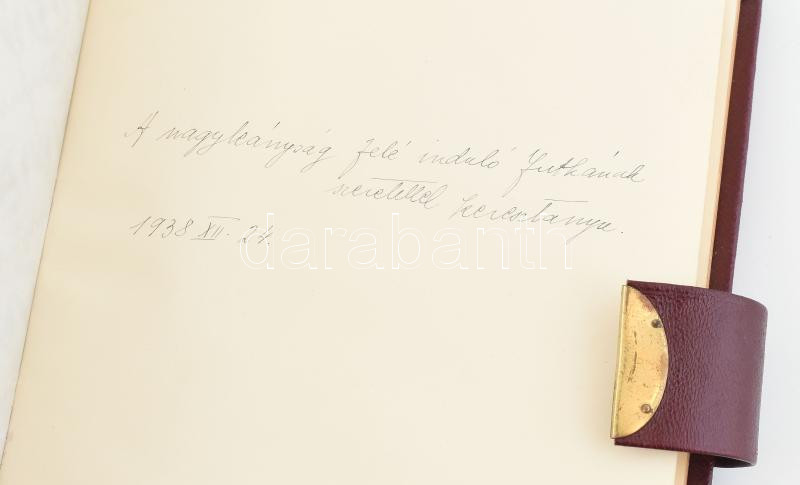 A nagyleányság felé induló Jutkának
szeretettel keresztanyu.
1938 XII. 24.
darabanth